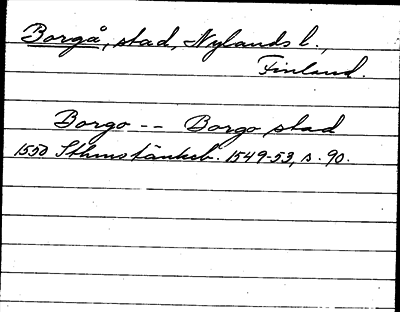 Borgå, stad, Nylands l.,
Finland.
Borgo -- Borgo stad
1550 Sthmstänkeb. 1549-53, s. 90.